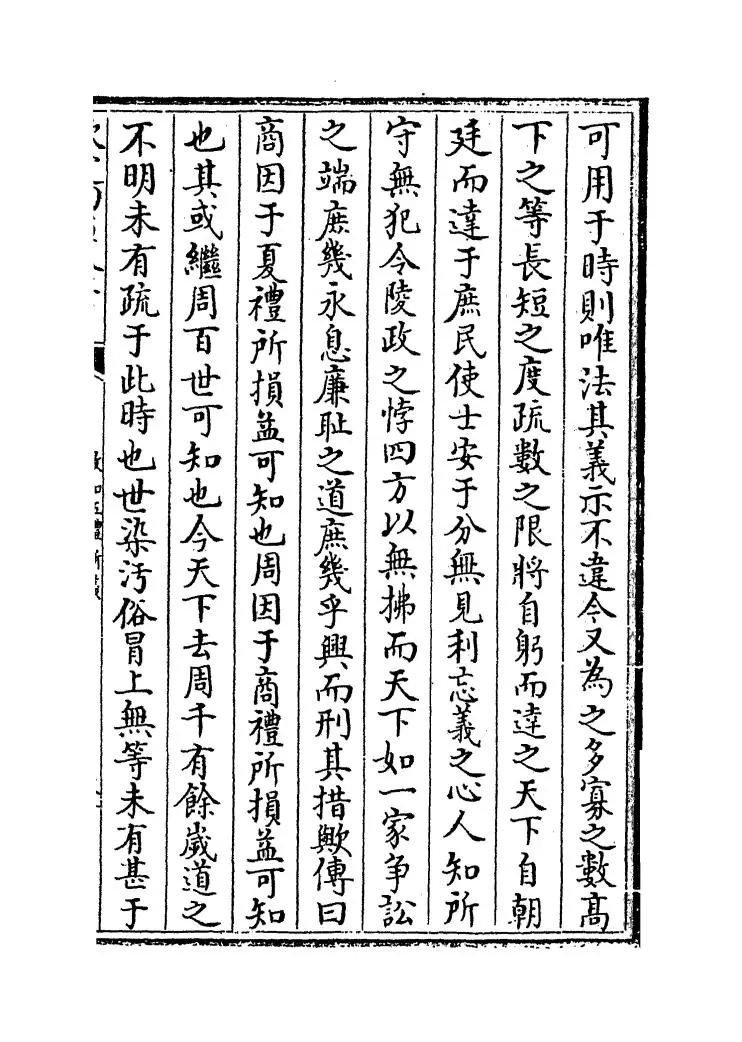 可用于時則唯法其義示不違今又為之多寡之數髙
下之等長短之度疏數之限將自躬而達之天下自朝
廷而達于庶民使士安于分無見利忘義之心人知所
守無犯令陵政之悖四方以無拂而天下如一家争訟
之端庶幾永息廉耻之道庶幾乎興而刑其措歟傳曰
商因于夏禮所損益可知也周因于商禮所損益可知
也其或繼周百世可知也今天下去周千有餘嵗道之
不明未有疏于此時也世染汚俗冒上無等未有甚于